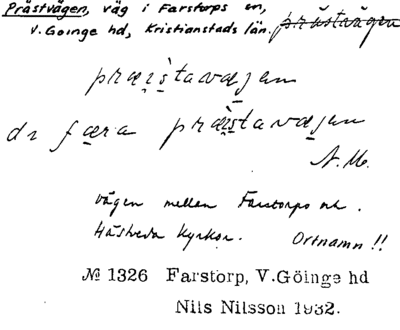 Prästvägen, väg i Farstorps sn,
V. Göinge hd, Kristianstads län. prästvägen
præistavæjen
di færa præistavæjen
vägen mellan Farstorps och
Hästveda kyrkor. Ortnamn!!
№ 1326 Farstorp, V. Göinge hd
Nils Nilsson 1932.